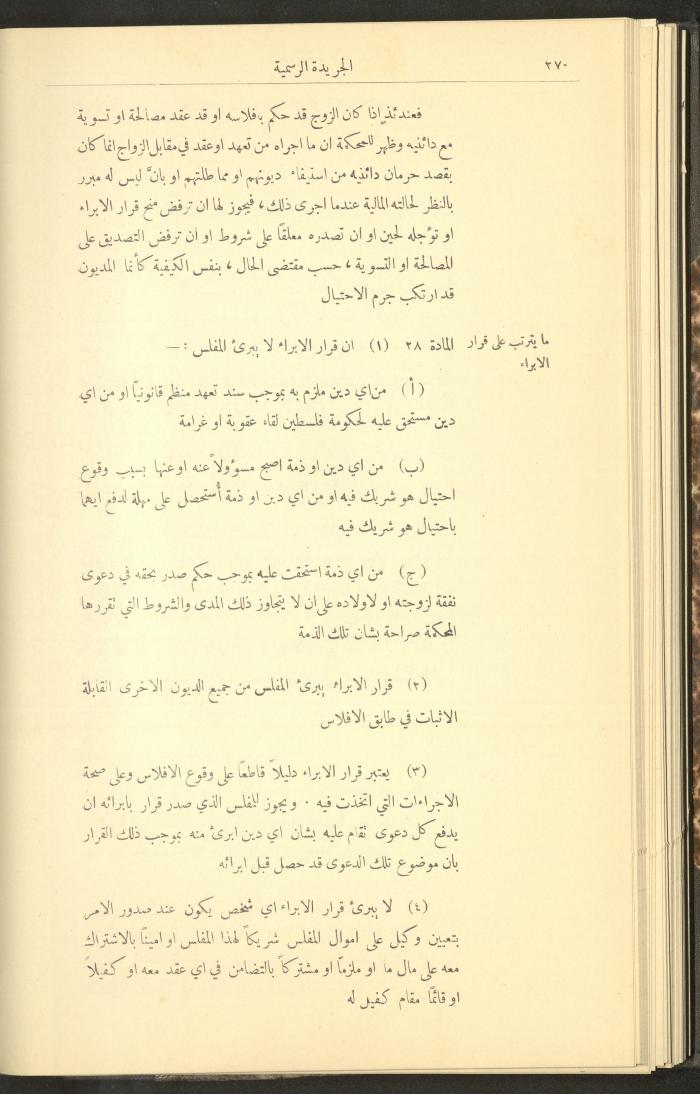 ٢٧٠
الجريدة الرسمية
فعندئذٍ اذا كان الزوج قد حكم بافلاسه او قد عقد مصالحة او تسوية
مع دائنيه وظهر للمحكمة ان ما اجراه من تعهد او عقد في مقابل الزواج انما كان
بقصد حرمان دائنيه من استيفاء ديونهم او مماطلتهم او بانَّ ليس له مبرر
بالنظر لحالته المالية عندما اجرى ذلك ، فيجوز لها ان ترفض منح قرار الابراء
او تؤجله لحين او ان تصدره معلقًا على شروط او ان ترفض التصديق على
المصالحة او التسوية ، حسب مقتضى الحال ، بنفس الكيفية كأنما المديون
قد ارتكب جرم الاحتيال
ما يترتب على قرار
الابراء
المادة ٢٨ (١) ان قرار الابراء لا يبرئ المفلس : —
(أ) من اي دين ملزم به بموجب سند تعهد منظم قانونيًا او من اي
دين مستحق عليه لحكومة فلسطين لقاء عقوبة او غرامة
(ب) من اي دين او ذمة اصبح مسؤولاً عنه او عنها بسبب وقوع
احتيال هو شريك فيه او من اي دين او ذمة أُستحصل على مهلة لدفع ايهما
باحتيال هو شريك فيه
(ج) من اي ذمة استحقت عليه بموجب حكم صدر بحقه في دعوى
نفقة لزوجته او لاولاده على ان لا يتجاوز ذلك المدى والشروط التي تقررها
المحكمة صراحة بشان تلك الذمة
(٢) قرار الابراء يبرئ المفلس من جميع الديون الاخرى القابلة
الاثبات في طابق الافلاس
(٣) يعتبر قرار الابراء دليلاً قاطعًا على وقوع الافلاس وعلى صحة
الاجراءات التي اتخذت فيه . ويجوز للمفلس الذي صدر قرار بابرائه ان
يدفع كل دعوى تقام عليه بشان اي دين ابرئ منه بموجب ذلك القرار
بان موضوع تلك الدعوى قد حصل قبل ابرائه
(٤) لا يبرئ قرار الابراء اي شخص يكون عند صدور الامر
بتعيين وكيل على اموال المفلس شريكاً لهذا المفلس او امينًا بالاشتراك
معه على مال ما او ملزمًا او مشتركاً بالتضامن في اي عقد معه او كفيلاً
او قائمًا مقام كفيل له